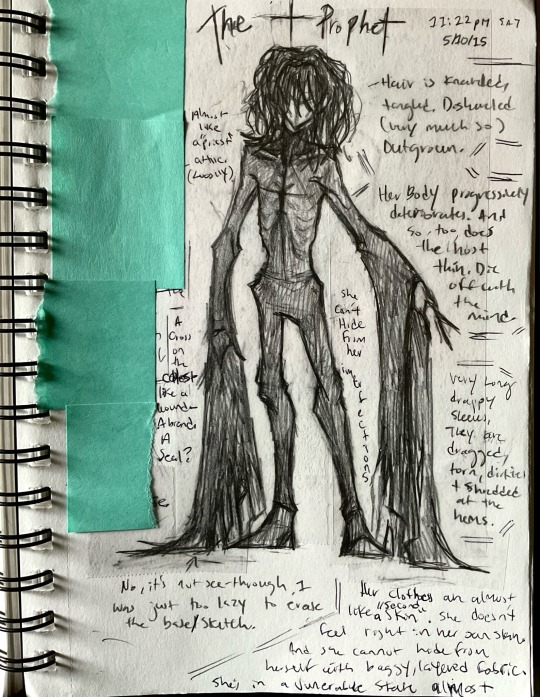 The + Prophet
11:22 PM SAT
5/30/15
Almost
like
a "priest"
attire.
(Loosely)
- Hair is Knarled,
tangled. Disheveled
(very much so)
Outgrown.
Her Body progressively
deteriorates. And
so, too, does
the host
thin. Die
off with
the
mind
she
can't
Hide
from
her
imperfections
A
Cross
on
the
chest
like a
wound
A brand
A
Seal?
very Long
drappy
sleeves,
They are
dragged,
torn, dirtied
+ shredded
at the
hems.
No, it's not see-through, I
was just too lazy to erase
the base/sketch.
Her clothes are almost
like a "second skin". she doesn't
feel right in her own skin.
And she cannot hide from
herself with baggy, layered fabric.
she's in a vunerable state almost